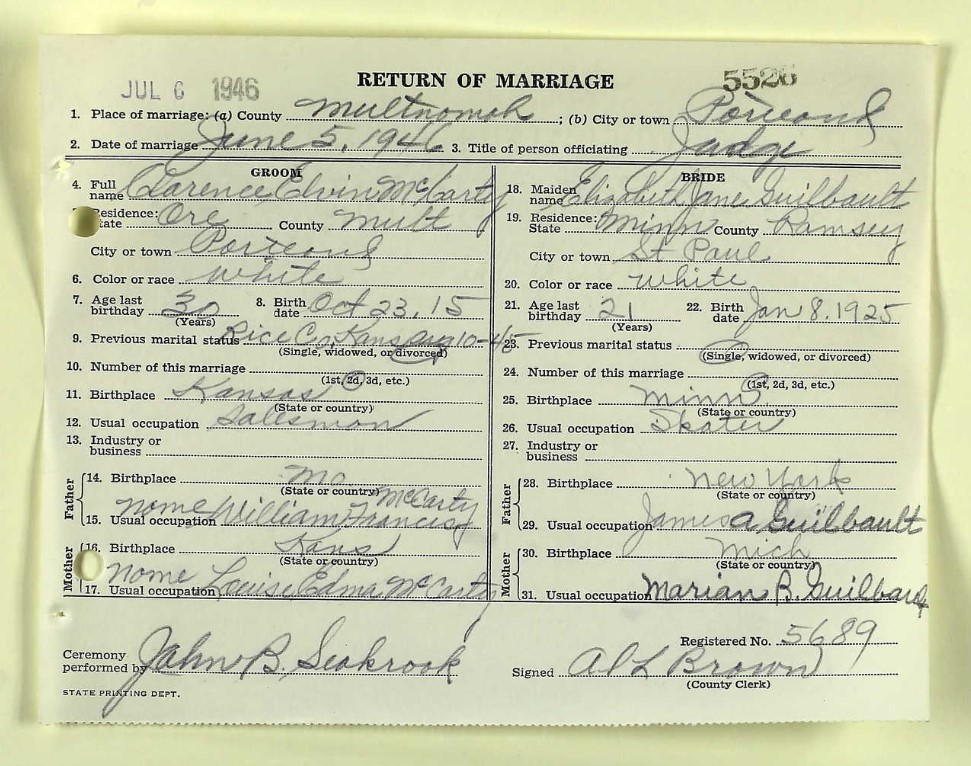 JUL 6 1946 RETURN OF MARRIAGE 5526
1. Place of marriage: (a) County Multnomah ; (b) City or town Portland
2. Date of marriage June 5, 1946 3. Title of person officiating Judge
GROOM
4. Full name Clarence Elvin McCarty
Residence: State Ore County Mult
City or town Portland
6. Color or race White
7. Age last birthday 30 (Years) 8. Birth date Oct 23, 15
9. Previous marital status Rice Co, Kans Aug 10-45
(Single, widowed, or divorced)
10. Number of this marriage
(1st, 2d, 3d, etc.)
11. Birthplace Kansas
(State or country)
12. Usual occupation Salesman
13. Industry or business
Father
14. Birthplace Mo
(State or country)
15. Usual occupation name William Francis McCarty
Mother
16. Birthplace Kans
(State or country)
17. Usual occupation name Louise Edma McCarty
BRIDE
18. Maiden name Elizabeth Jane Guilbault
19. Residence: State Minn County Ramsey
City or town St Paul
20. Color or race White
21. Age last birthday 21 (Years) 22. Birth date Jan 8, 1925
23. Previous marital status
(Single, widowed, or divorced)
24. Number of this marriage
(1st, 2d, 3d, etc.)
25. Birthplace Minn
(State or country)
26. Usual occupation Skater
27. Industry or business
Father
28. Birthplace New York
(State or country)
29. Usual occupation James A Guilbault
Mother
30. Birthplace Mich
(State or country)
31. Usual occupation Marian B. Guilbault
Ceremony performed by John B. Seabrook
Registered No. 5689
Signed Al L Brown
(County Clerk)
STATE PRINTING DEPT.